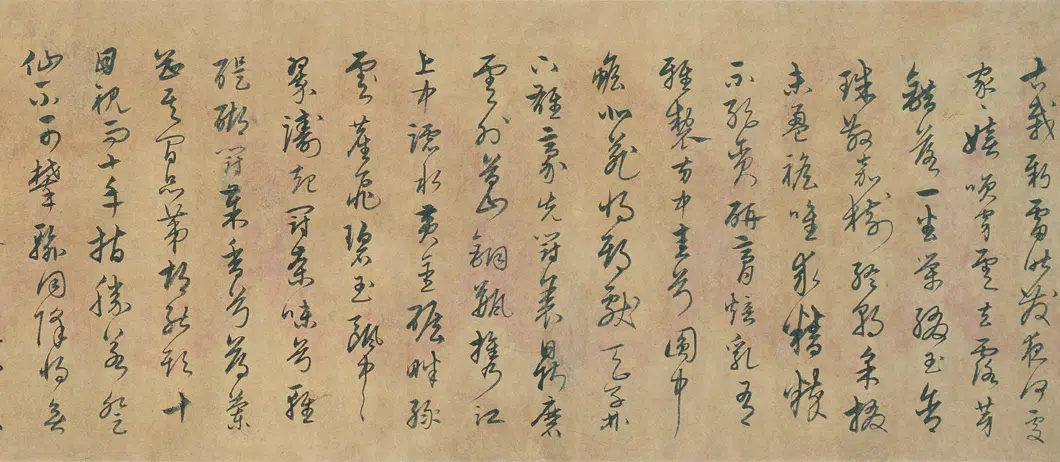 古栽新雷昨夜發何處
家〻嬉笑穿雲去露芽
錯落一番榮綴玉含
珠散嘉樹終朝采掇
未盈襜唯求精粹
不敢貪研膏焙乳有
雅製方中圭兮圓中
蟾北苑將期獻天子林
下雄豪先鬥美鼎磨
雲外首山銅瓶攜江
上中澪水黃金碾畔綠
雲塵飛碧玉甌中
翠濤起鬥茶味兮輕
醍醐鬥茶香兮薄蘭
芷其間品第胡能欺十
目視而十手指勝若登
仙不可攀輸同降將無